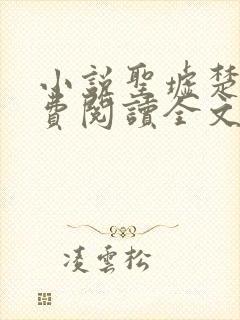 小說聖墟楚
費閱讀全文
凌雲松